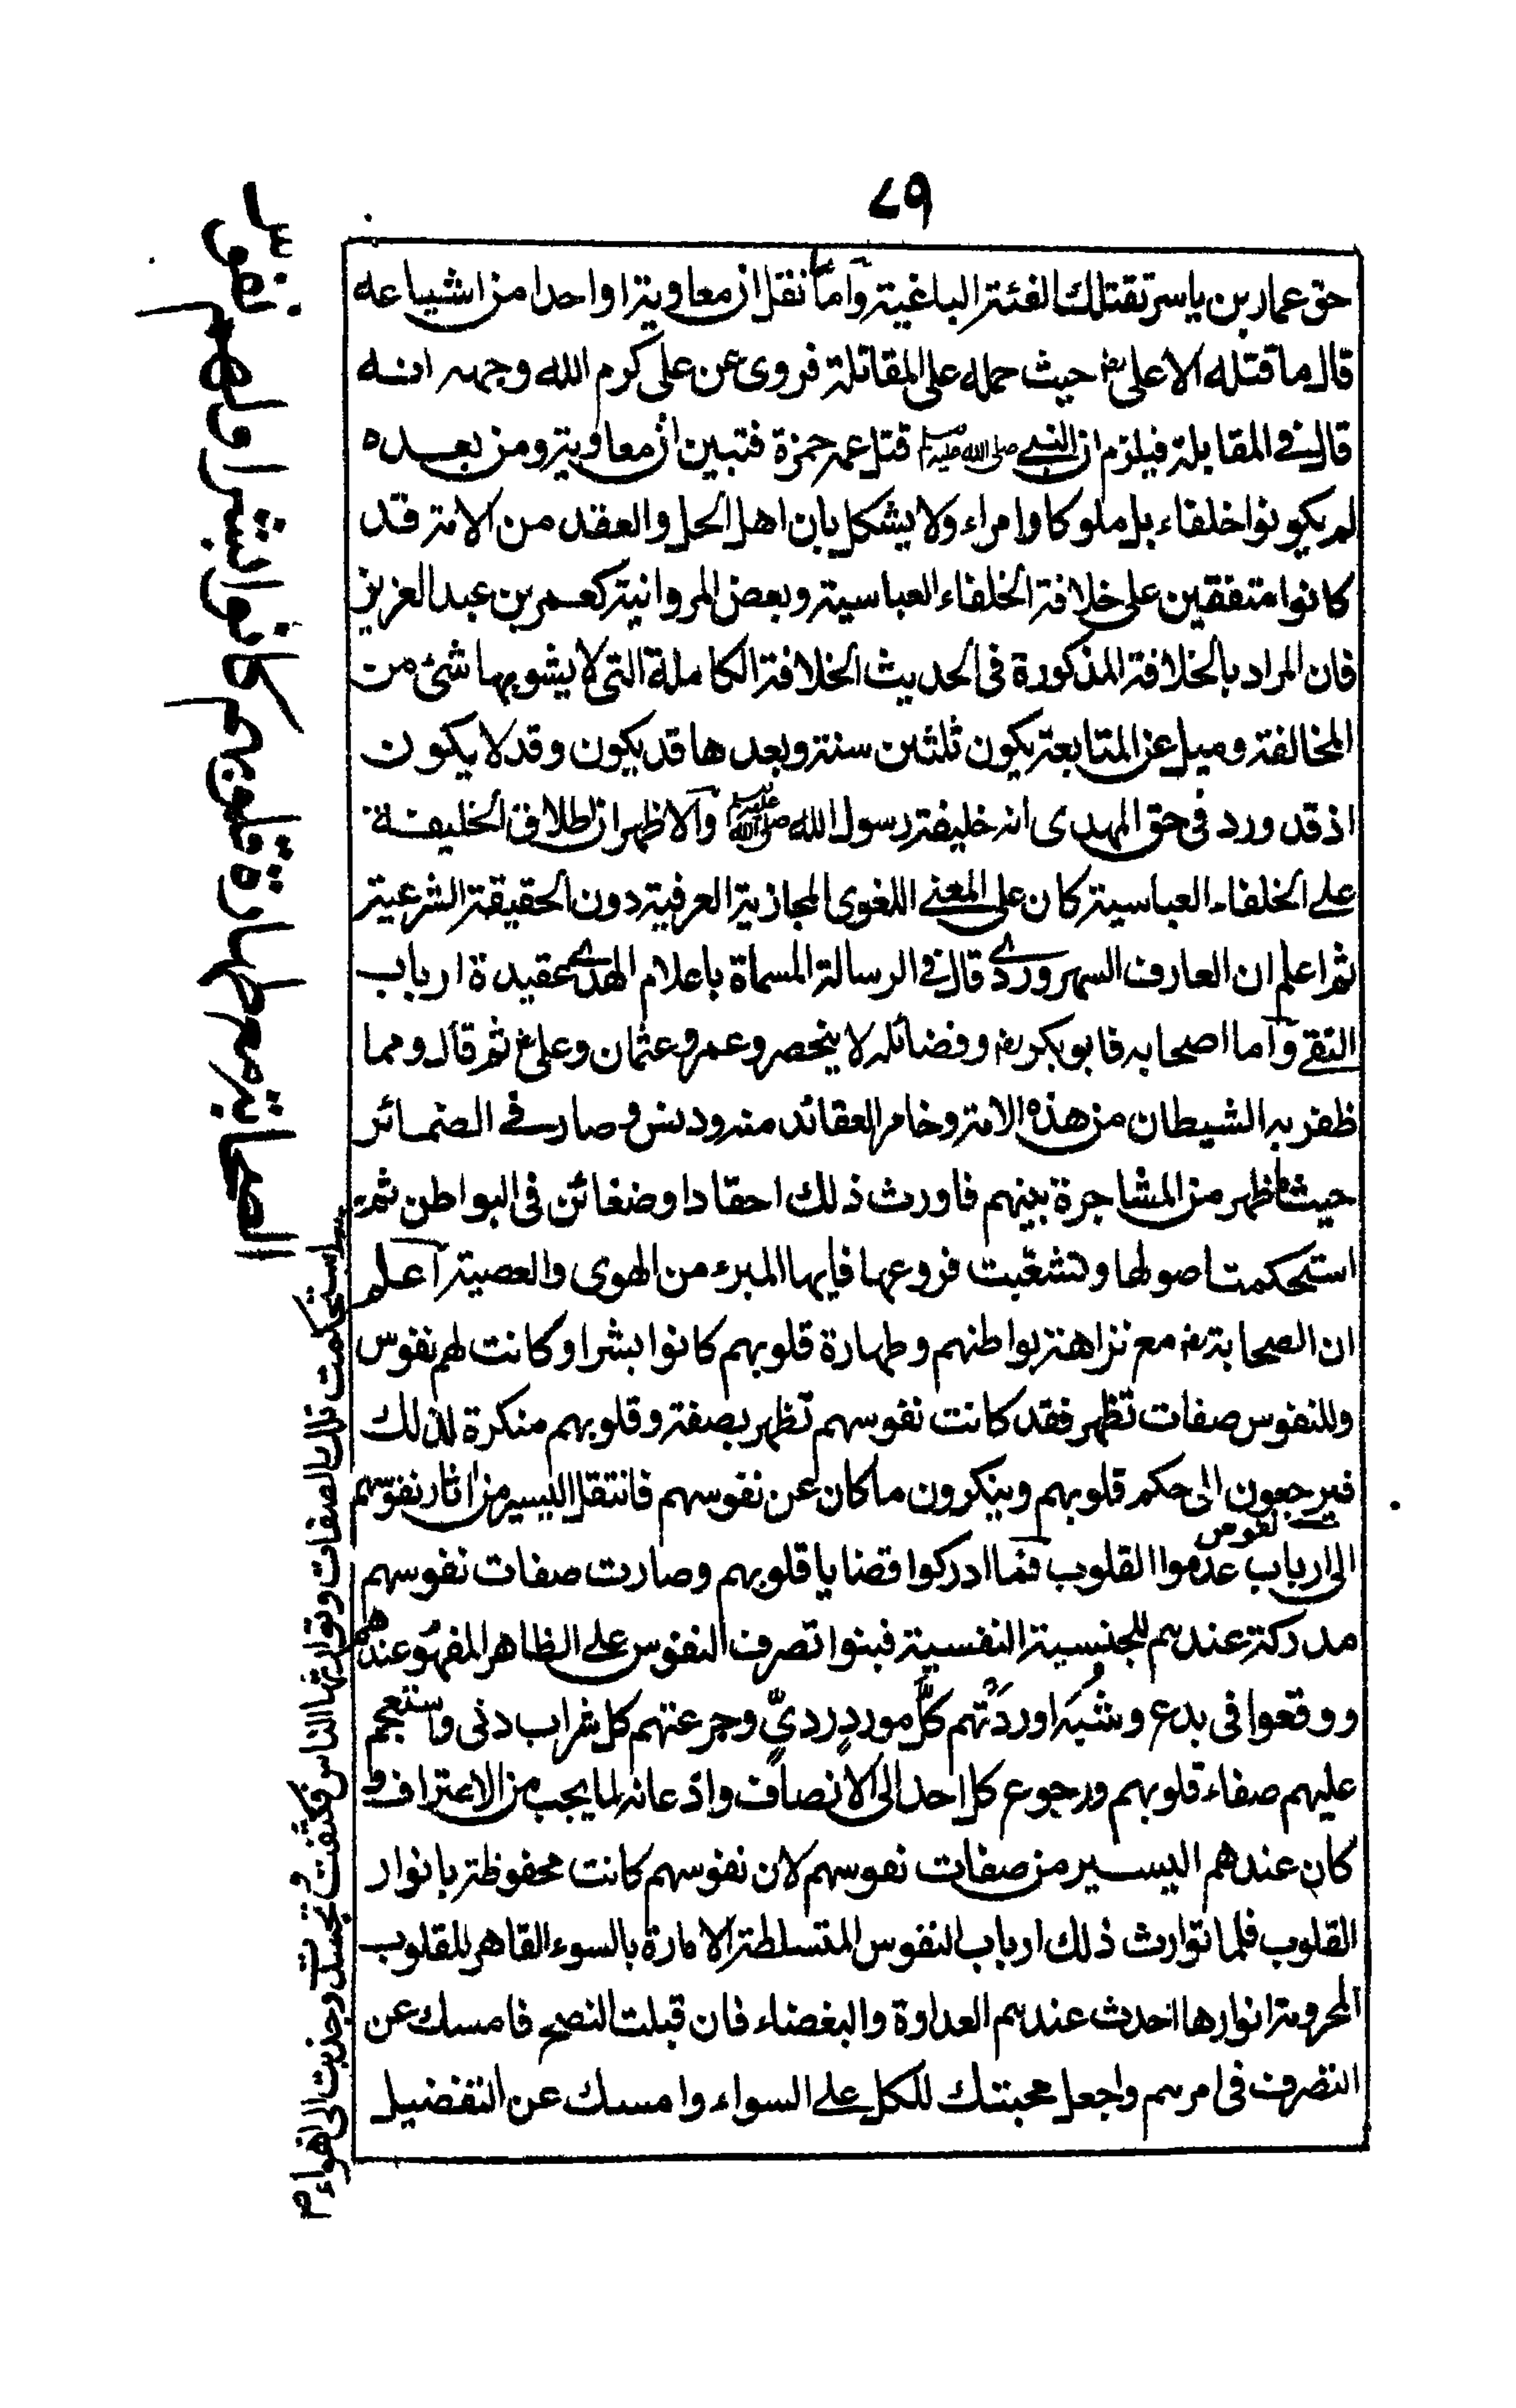 ٧٩
حق عمار بن ياسر تقتلك الفئة الباغية وأما نقل ان معاوية او احدا من اشياعه
قال ما قتله الا على رض حيث حمله على المقاتلة فروى عن على كرم الله وجهه انه
قال فى المقابلة فيلزم ان النبى صلى الله عليه وسلم قتل عمه حمزة فتبين ان معاوية ومن بعده
لم يكونوا خلفاء بل ملوكا وامراء ولا يشكل بان اهل الحل والعقد من الامة قد
كانوا متفقين على خلافة الخلفاء العباسية وبعض المروانية كعمر بن عبد العزيز
فان المراد بالخلافة المذكورة فى الحديث الخلافة الكاملة التى لا يشوبها شئ من
المخالفة وميل عن المتابعة يكون ثلثين سنة وبعدها قد يكون وقد لا يكون
اذ قد ورد فى حق المهدى انه خليفة رسول الله صلى الله عليه وسلم والاظهر ان اطلاق الخليفة
على الخلفاء العباسية كان على المعنى اللغوى المجازية العرفية دون الحقيقة الشرعية
ثم اعلم ان العارف السهروردى قال فى الرسالة المسماة باعلام الهدى عقيدة ارباب
التقى وأما اصحابه فابو بكر رض وفضائله لا ينحصر وعمر وعثمان وعلى رض ثم قال ومما
ظفر به الشيطان من هذه الامة وخامر العقائد منه ودنس وصار فى الضمائر
حيث ما ظهر من المشاجرة بينهم فاورث ذلك احقادا وضغائن فى البواطن ثم
استحكمت اصولها وتشعبت فروعها فايها المبرء من الهوى والعصبية أعلم
ان الصحابة رض مع نزاهة بواطنهم وطهارة قلوبهم كانوا بشرا وكانت لهم نفوس
وللنفوس صفات تظهر فقد كانت نفوسهم تظهر بصفة وقلوبهم منكرة لذلك
فيرجعون الى حكم قلوبهم وينكرون ما كان عن نفوسهم فانتقل اليسير من اثار نفوسهم
نفوس
الى ارباب عدموا القلوب فما ادركوا قضايا قلوبهم وصارت صفات نفوسهم
مدركة عندهم للجنسية النفسية فبنوا تصرف النفوس على الظاهر المفهوم عندهم
ووقعوا فى بدع وشُبَه اوردَتْهم كلَّ موردٍ رديٍّ وجرعتهم كل شراب دنى واستعجم
عليهم صفاء قلوبهم ورجوع كل احد الى الانصاف واذعانه لما يجب من الاعتراف و
كان عندهم اليسير من صفات نفوسهم لان نفوسهم كانت محفوظة بانوار
القلوب فلما توارث ذلك ارباب النفوس المتسلطة الامارة بالسوء القاهر للقلوب
المحرومة انوارها احدث عندهم العداوة والبغضاء فان قبلت النصح فامسك عن
التصرف فى امرهم واجعل محبتك للكل على السواء وامسك عن التفضيل
الصحابة مع طهارة قلوبهم كانوا بشرا ولهم نفوس
استحكمت تلك الصفات وتوارثها الناس فكثفت وتجسدت وجذبت الى اهواء م